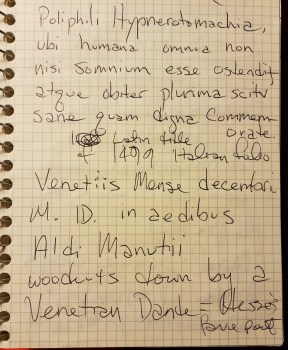 Poliphili Hypnerotomachia,
ubi humana omnia non
nisi somnium esse ostendit
atque obiter plurima scitu
sane quam digna Commem
orate
Latin title
1499 Italian folio
Venetiis Mense decembri
M. ID. in aedibus
Aldi Manutii
woodcuts down by a
Venetian Dante -